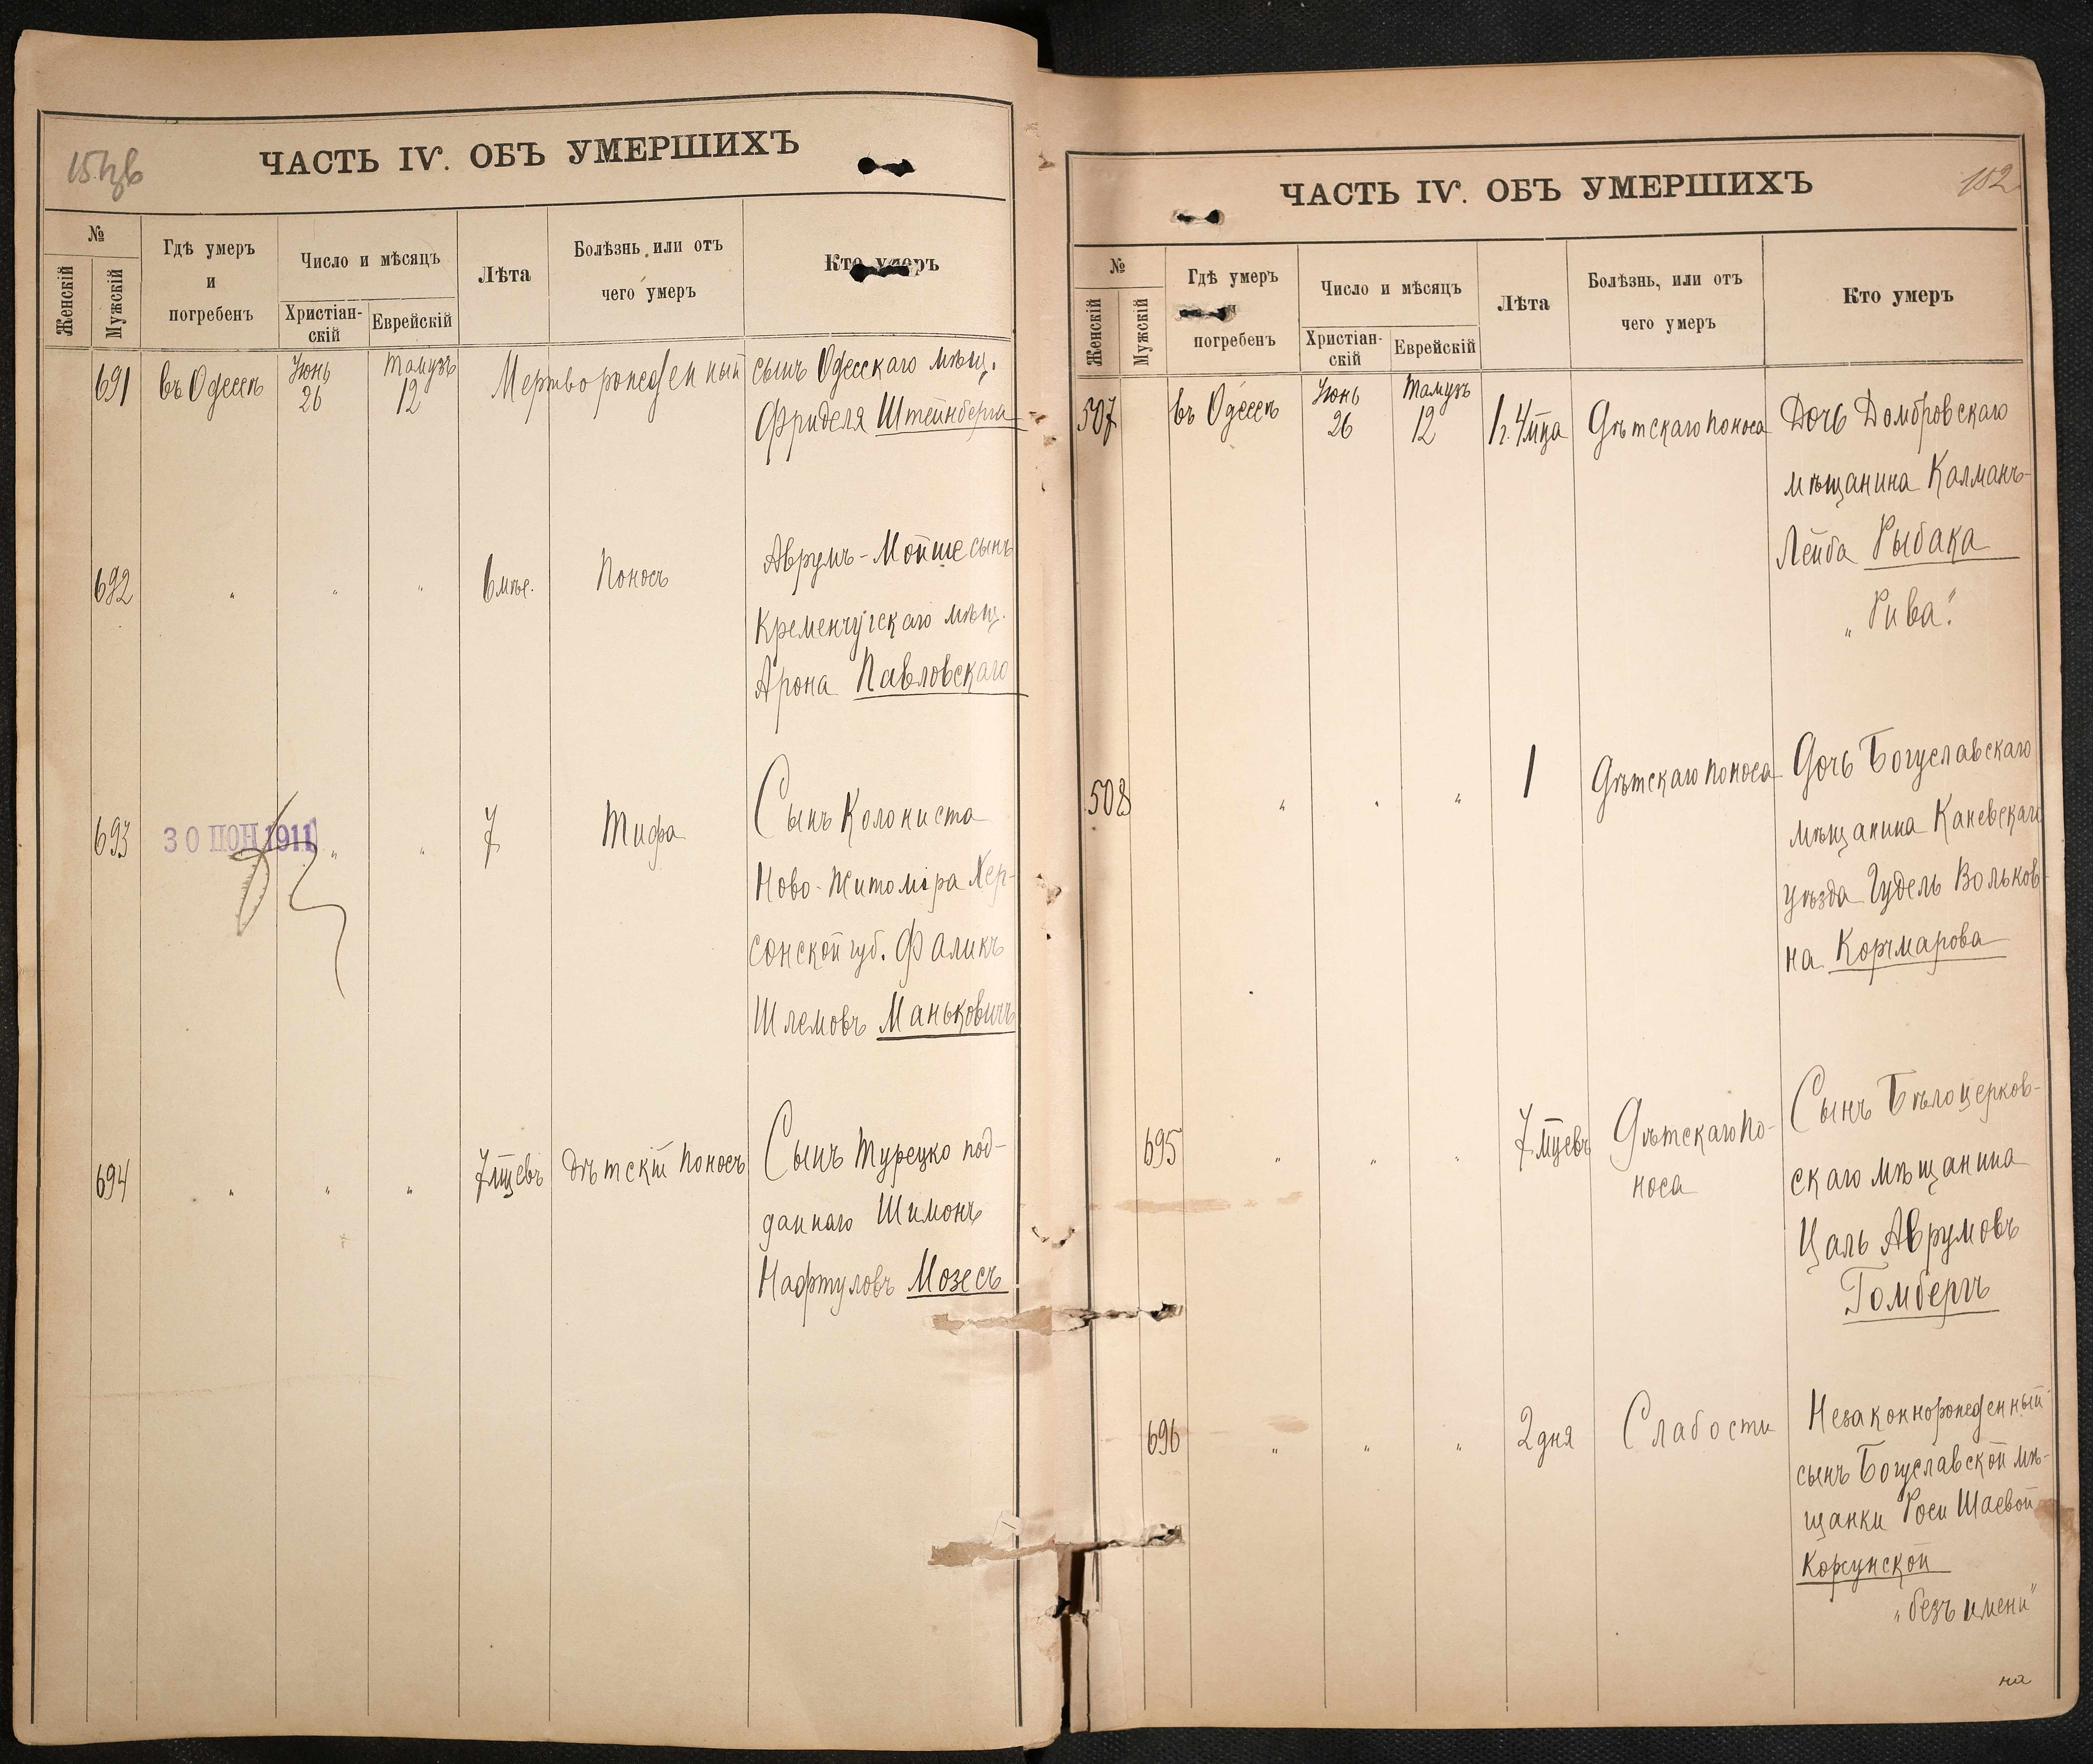 ЧАСТЬ IV. ОБЪ УМЕРШИХЪ
№
Женскій
Мужскій
Гдѣ умеръ
и
погребенъ
Число и мѣсяцъ
Христіан-
скій
Еврейскій
Лѣта
Болѣзнь, или отъ
чего умеръ
Кто умеръ
691 въ Одессѣ Іюнь 26 Тамузъ 12 Мертворожденный сынъ Одесскаго мѣщ.
Фриделя Штейнберга
692 " " " 6 мѣс. Поносъ Аврумъ-Мойше сынъ
Кременчугскаго мѣщ.
Арона Павловскаго
693 30 ІЮН 1911 " " 7 Тифа Сынъ Колониста
Ново-Житоміра Хер-
сонской губ. Фаликъ
Шлемовъ Маньковичъ
694 " " " 7 мцевъ Дѣтскій поносъ Сынъ Турецко под-
даннаго Шимонъ
Нафтуловъ Мозесъ
ЧАСТЬ IV. ОБЪ УМЕРШИХЪ
152
№
Женскій
Мужскій
Гдѣ умеръ
и
погребенъ
Число и мѣсяцъ
Христіан-
скій
Еврейскій
Лѣта
Болѣзнь, или отъ
чего умеръ
Кто умеръ
507 въ Одессѣ Іюнь 26 Тамузъ 12 1 г. 4 мца Дѣтскаго поноса Дочь Домбровскаго
мѣщанина Калманъ-
Лейба Рыбака
"Рива".
508 " " " 1 Дѣтскаго поноса Дочь Богуславскаго
мѣщанина Каневскаго
уѣзда Гудель Вольков-
на Корчмарова
695 " " " 7 мцевъ Дѣтскаго по- Сынъ Бѣлоцерков-
носа скаго мѣщанина
Цаль Аврумовъ
Гомбергъ
696 " " " 2 дня Слабости Незаконнорожденный
сынъ Богуславской мѣ-
щанки Роси Шаевой
Корсунской
"безъ имени"
на